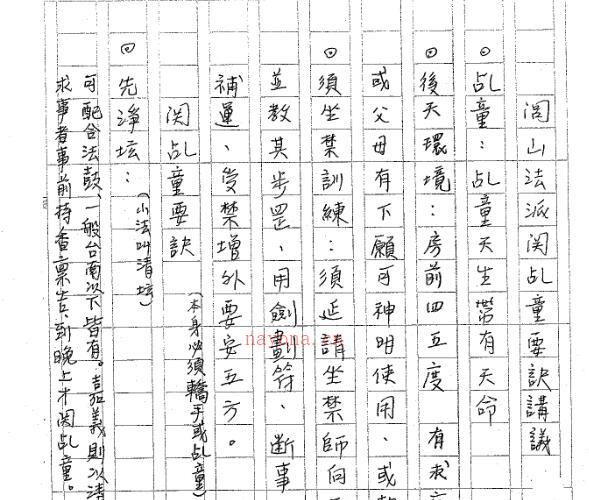 閭山法派関乩童要訣講議
◎乩童:乩童天生帶有天命
◎後天環境:房前四五度 有求
或父母有下願可神明使用、或
◎須坐禁訓練:須延請坐禁師向
並教其步罡、用劍劃符、斷事
補運、受禁增外要安五方。
関乩童要訣(本身必須轎手或乩童)
◎先淨坛:(小法叫清坛)
可配合法鼓、一般台南以下皆有。嘉義則以清
求事者事前持香稟告、到晚上才関乩童。
nayona.cn